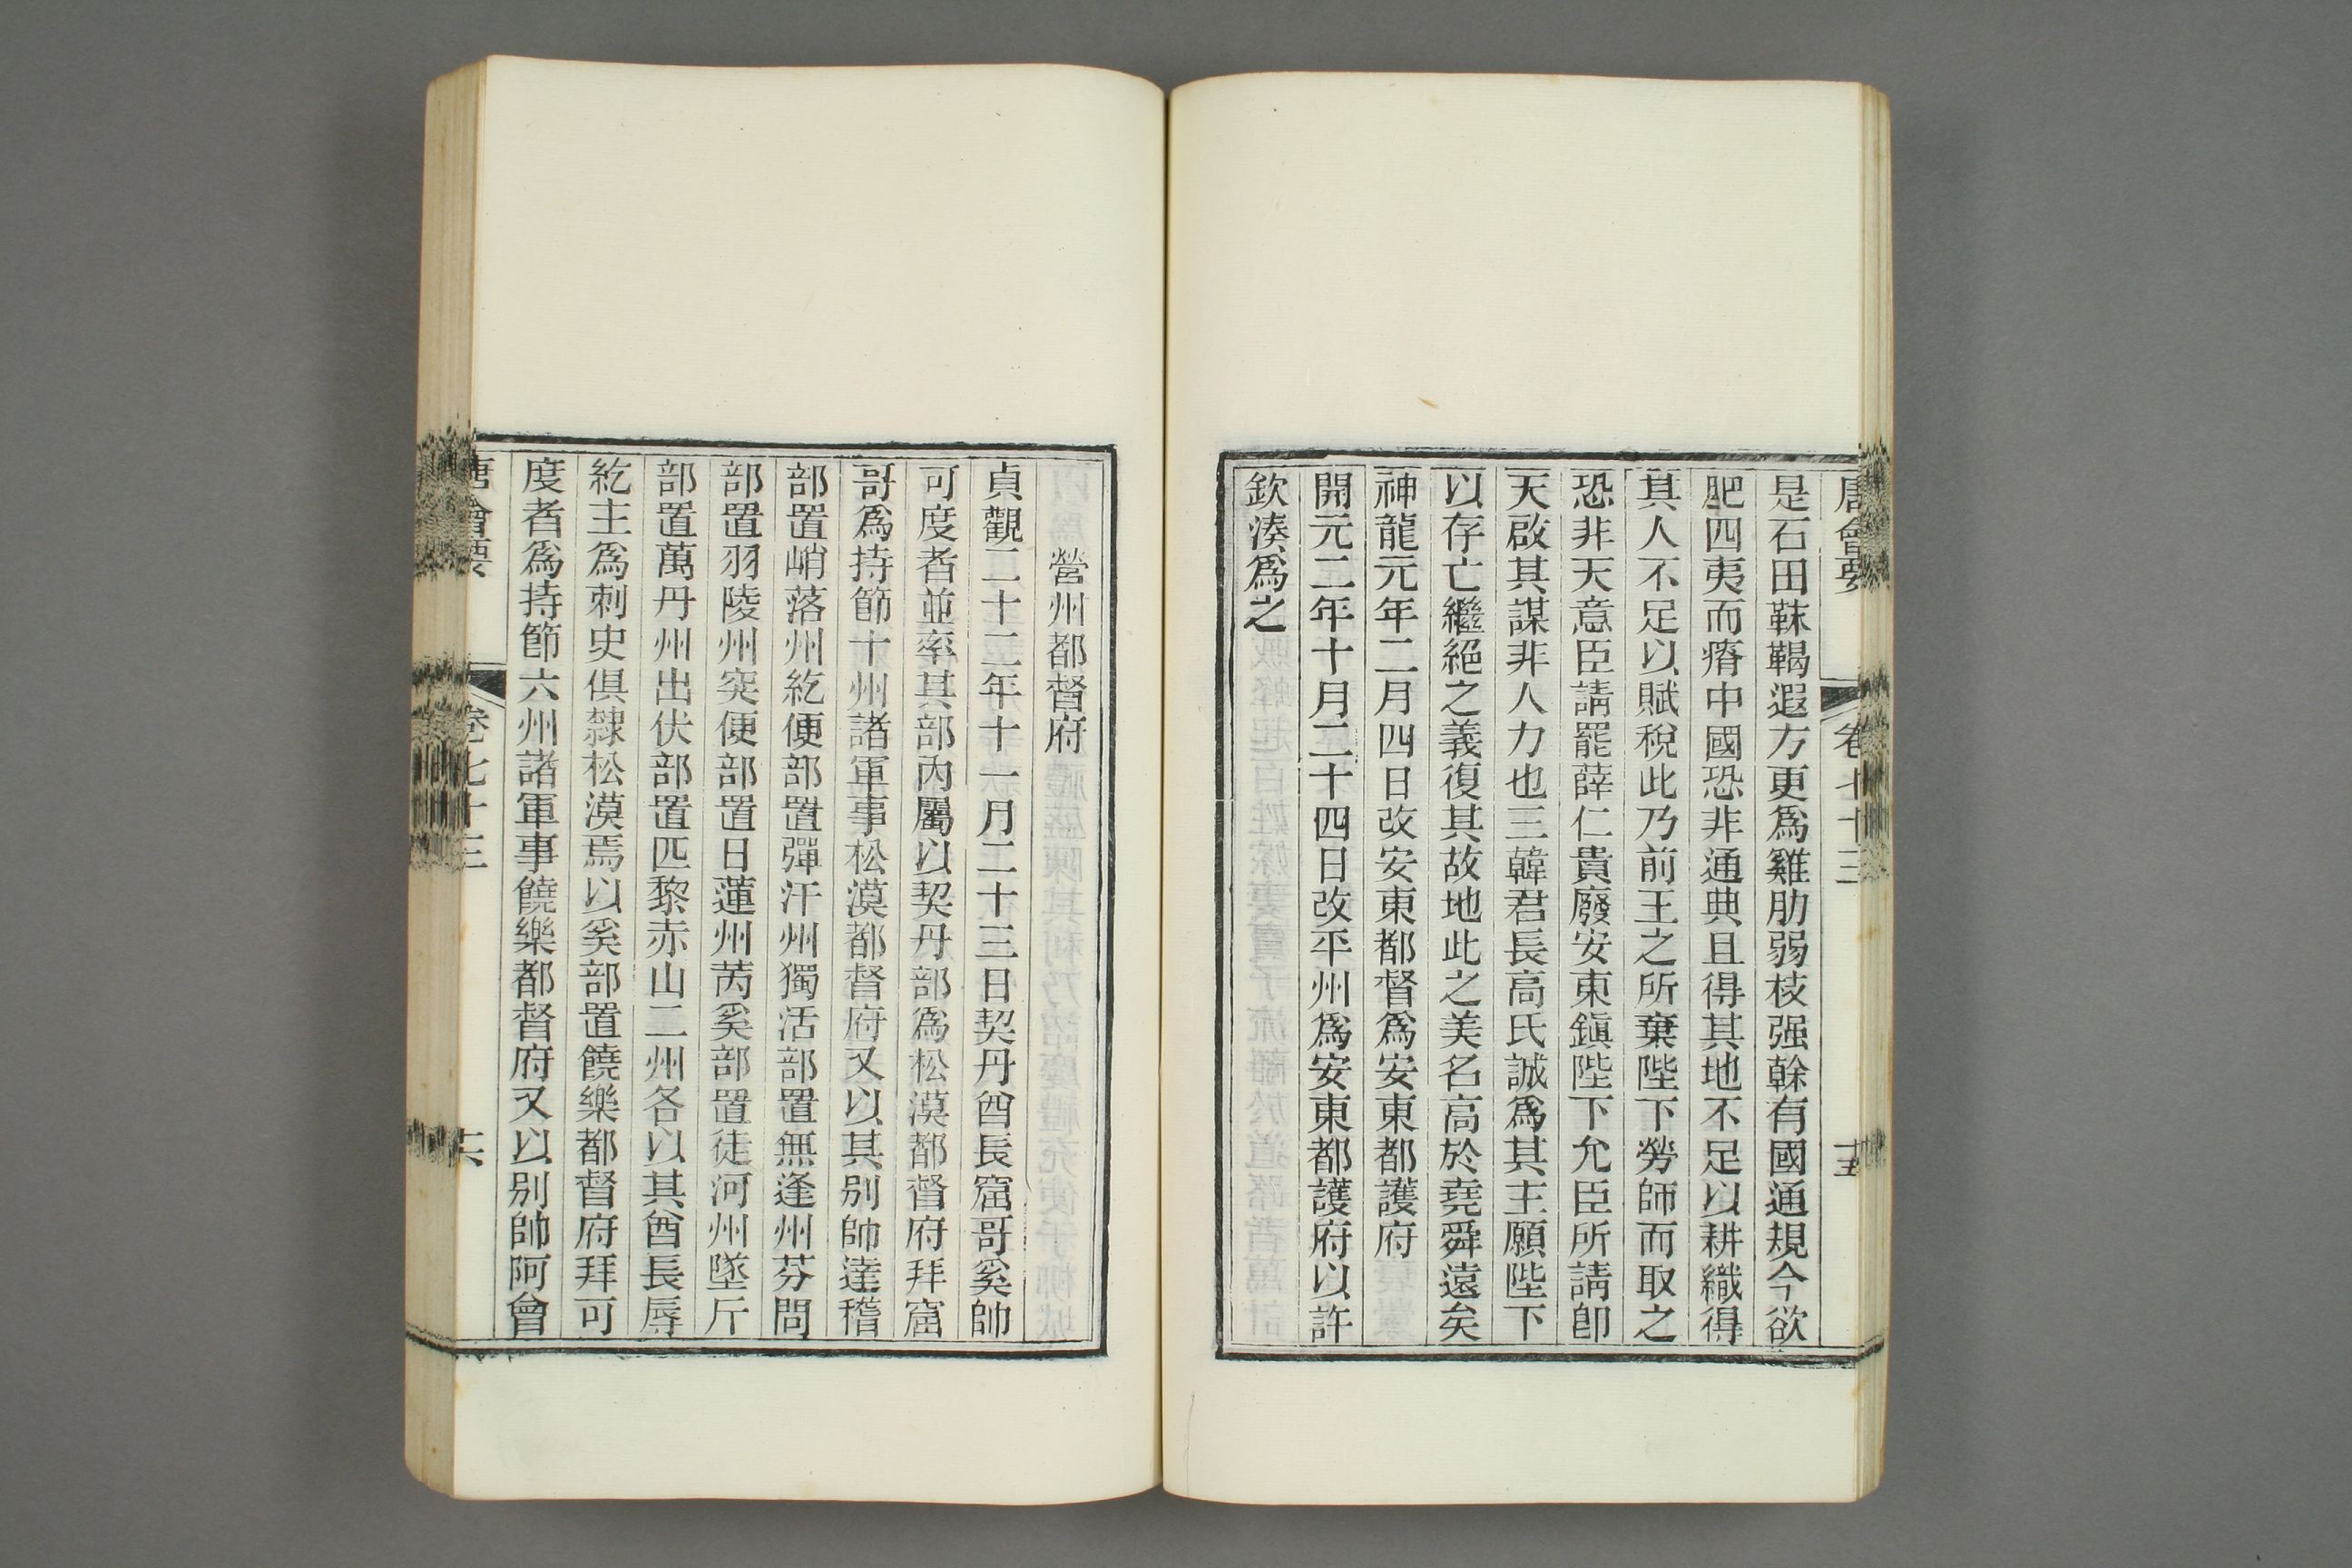 唐會要 卷七十三 十五
是石田靺鞨遐方更爲雞肋弱枝强榦有國通規今欲
肥四夷而瘠中國恐非通典且得其地不足以耕織得
其人不足以賦稅此乃前王之所棄陛下勞師而取之
恐非天意臣請罷薛仁貴廢安東鎭陛下允臣所請卽
天啟其謀非人力也三韓君長高氏誠爲其主願陛下
以存亡繼絕之義復其故地此之美名高於堯舜遠矣
神龍元年二月四日改安東都督爲安東都護府
開元二年十月二十四日改平州爲安東都護府以許
欽湊爲之
營州都督府
貞觀二十二年十一月二十三日契丹酋長窟哥奚帥
可度者並率其部內屬以契丹部爲松漠都督府拜窟
哥爲持節十州諸軍事松漠都督府又以其別帥達稽
部置峭落州紇便部置彈汗州獨活部置無逢州芬問
部置羽陵州突便部置日蓮州芮奚部置徒河州墜斤
部置萬丹州出伏部置匹黎赤山二州各以其酋長辱
紇主爲刺史俱隸松漠焉以奚部置饒樂都督府拜可
度者爲持節六州諸軍事饒樂都督府又以別帥阿曾
唐會要 卷七十三 十六